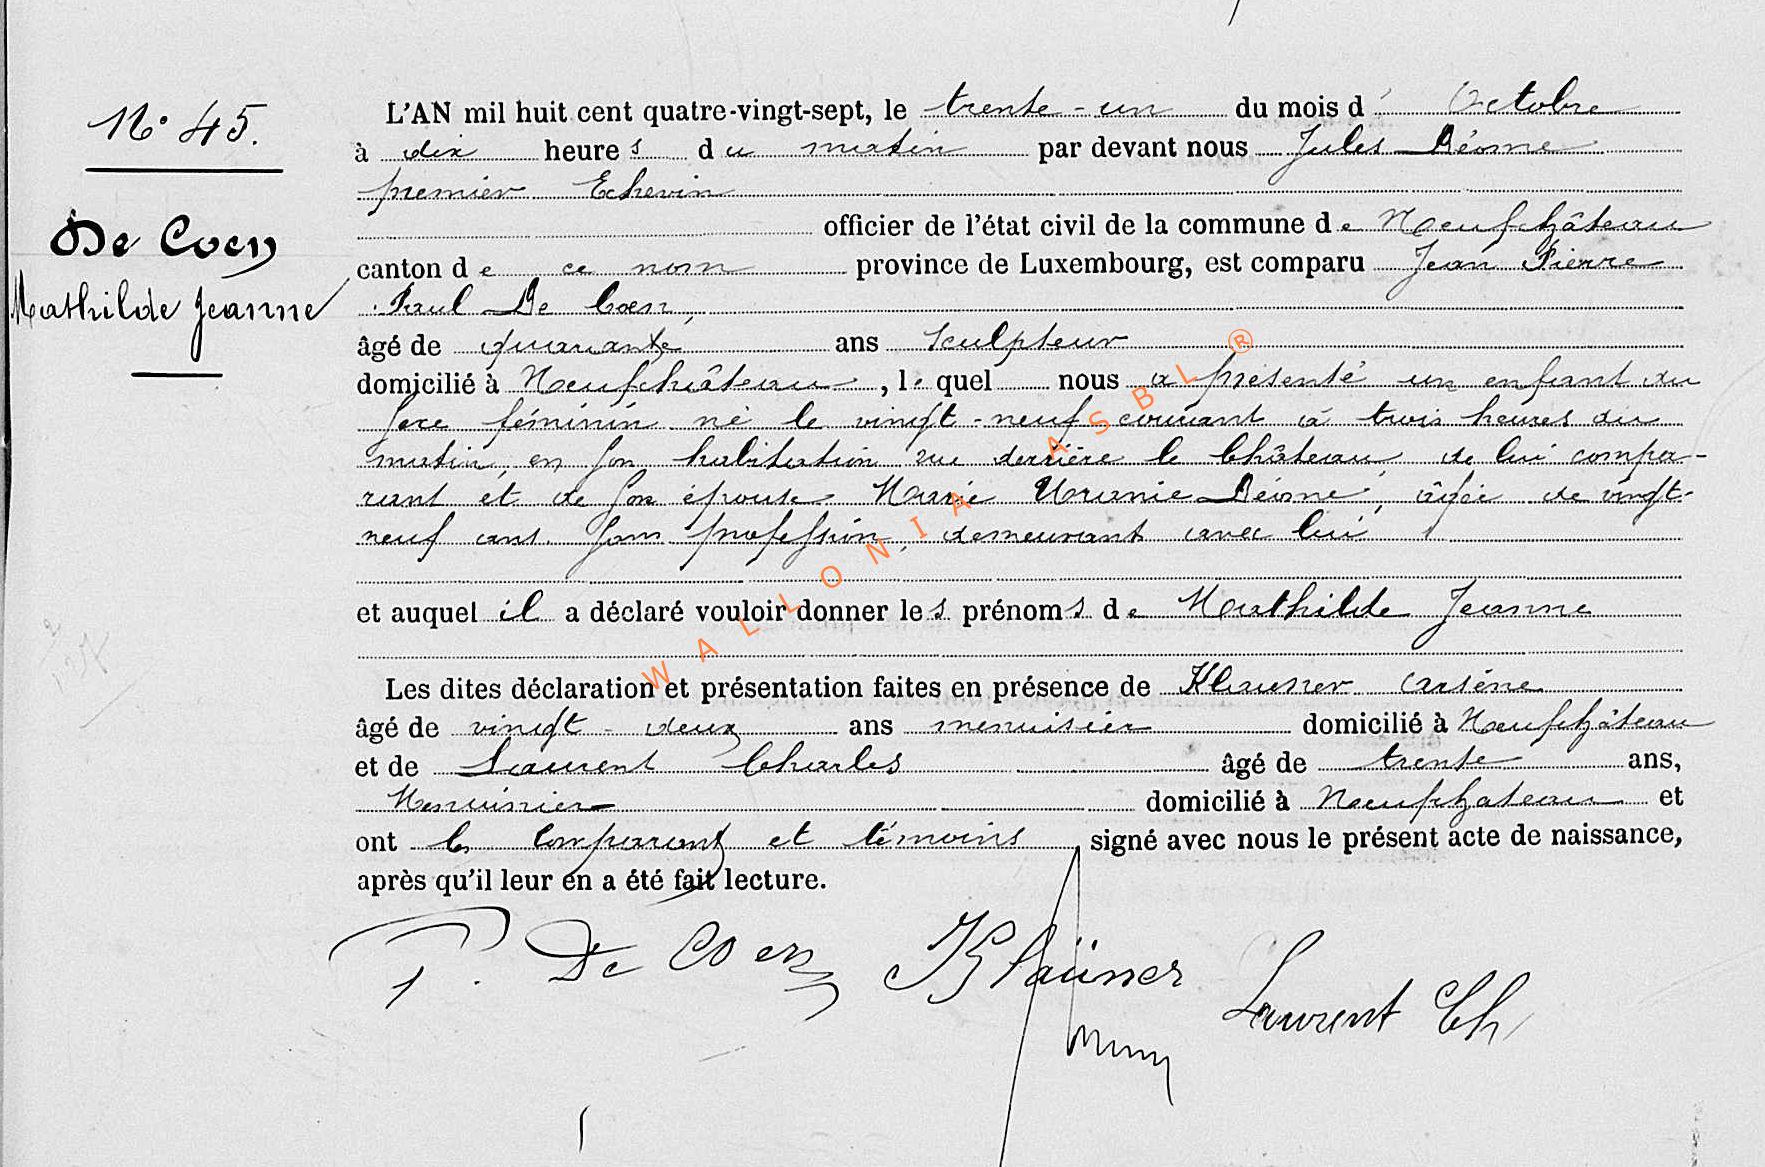 N° 45.
De Coen
Mathilde Jeanne
L'AN mil huit cent quatre-vingt-sept, le trente-un du mois d' Octobre
à dix heures du matin par devant nous Jules Déome
premier Echevin
officier de l'état civil de la commune de Neufchâteau
canton de ce nom province de Luxembourg, est comparu Jean Pierre
Paul De Coen,
âgé de quarante ans Sculpteur
domicilié à Neufchâteau, lequel nous a présenté un enfant du
sexe féminin né le vingt-neuf courant à trois heures du
matin, en son habitation rue derrière le Château, de lui compa-
rant et de son épouse Marie Uranie Déome, âgée de vingt-
neuf ans. sans profession, demeurant avec lui
et auquel il a déclaré vouloir donner les prénoms de Mathilde Jeanne
Les dites déclaration et présentation faites en présence de Klauner Arsène
âgé de vingt-deux ans menuisier domicilié à Neufchâteau
et de Laurent Charles âgé de trente ans,
Menuisier domicilié à Neufchateau et
ont les comparant et témoins signé avec nous le présent acte de naissance,
après qu'il leur en a été fait lecture.
P. De Coen Klaüner Laurent Ch
WALLONIA ASBL ®